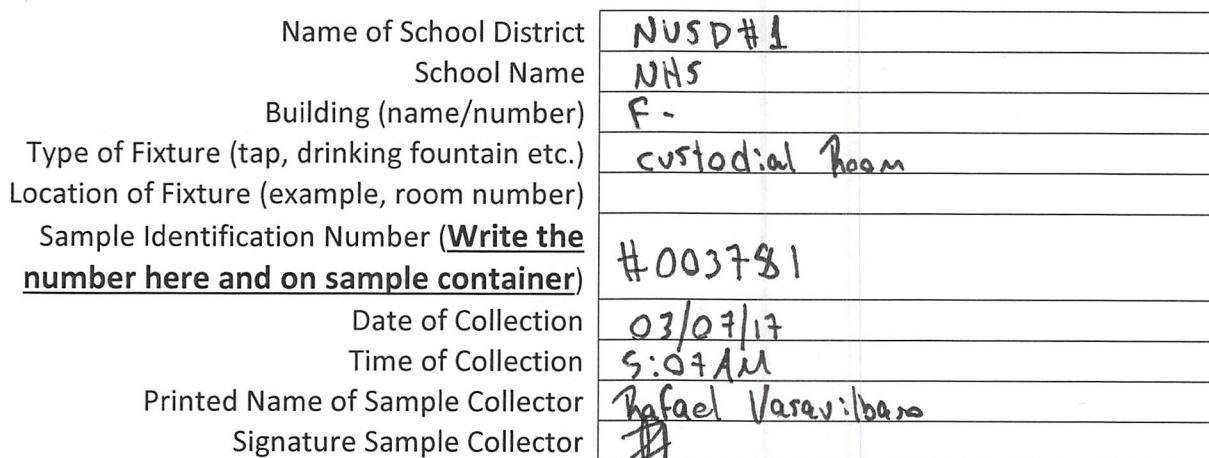 Name of School District NUSD#1
School Name NHS
Building (name/number) F-
Type of Fixture (tap, drinking fountain etc.) custodial Room
Location of Fixture (example, room number)
Sample Identification Number (Write the
number here and on sample container) #003781
Date of Collection 03/07/17
Time of Collection 5:07AM
Printed Name of Sample Collector Rafael
Signature Sample Collector